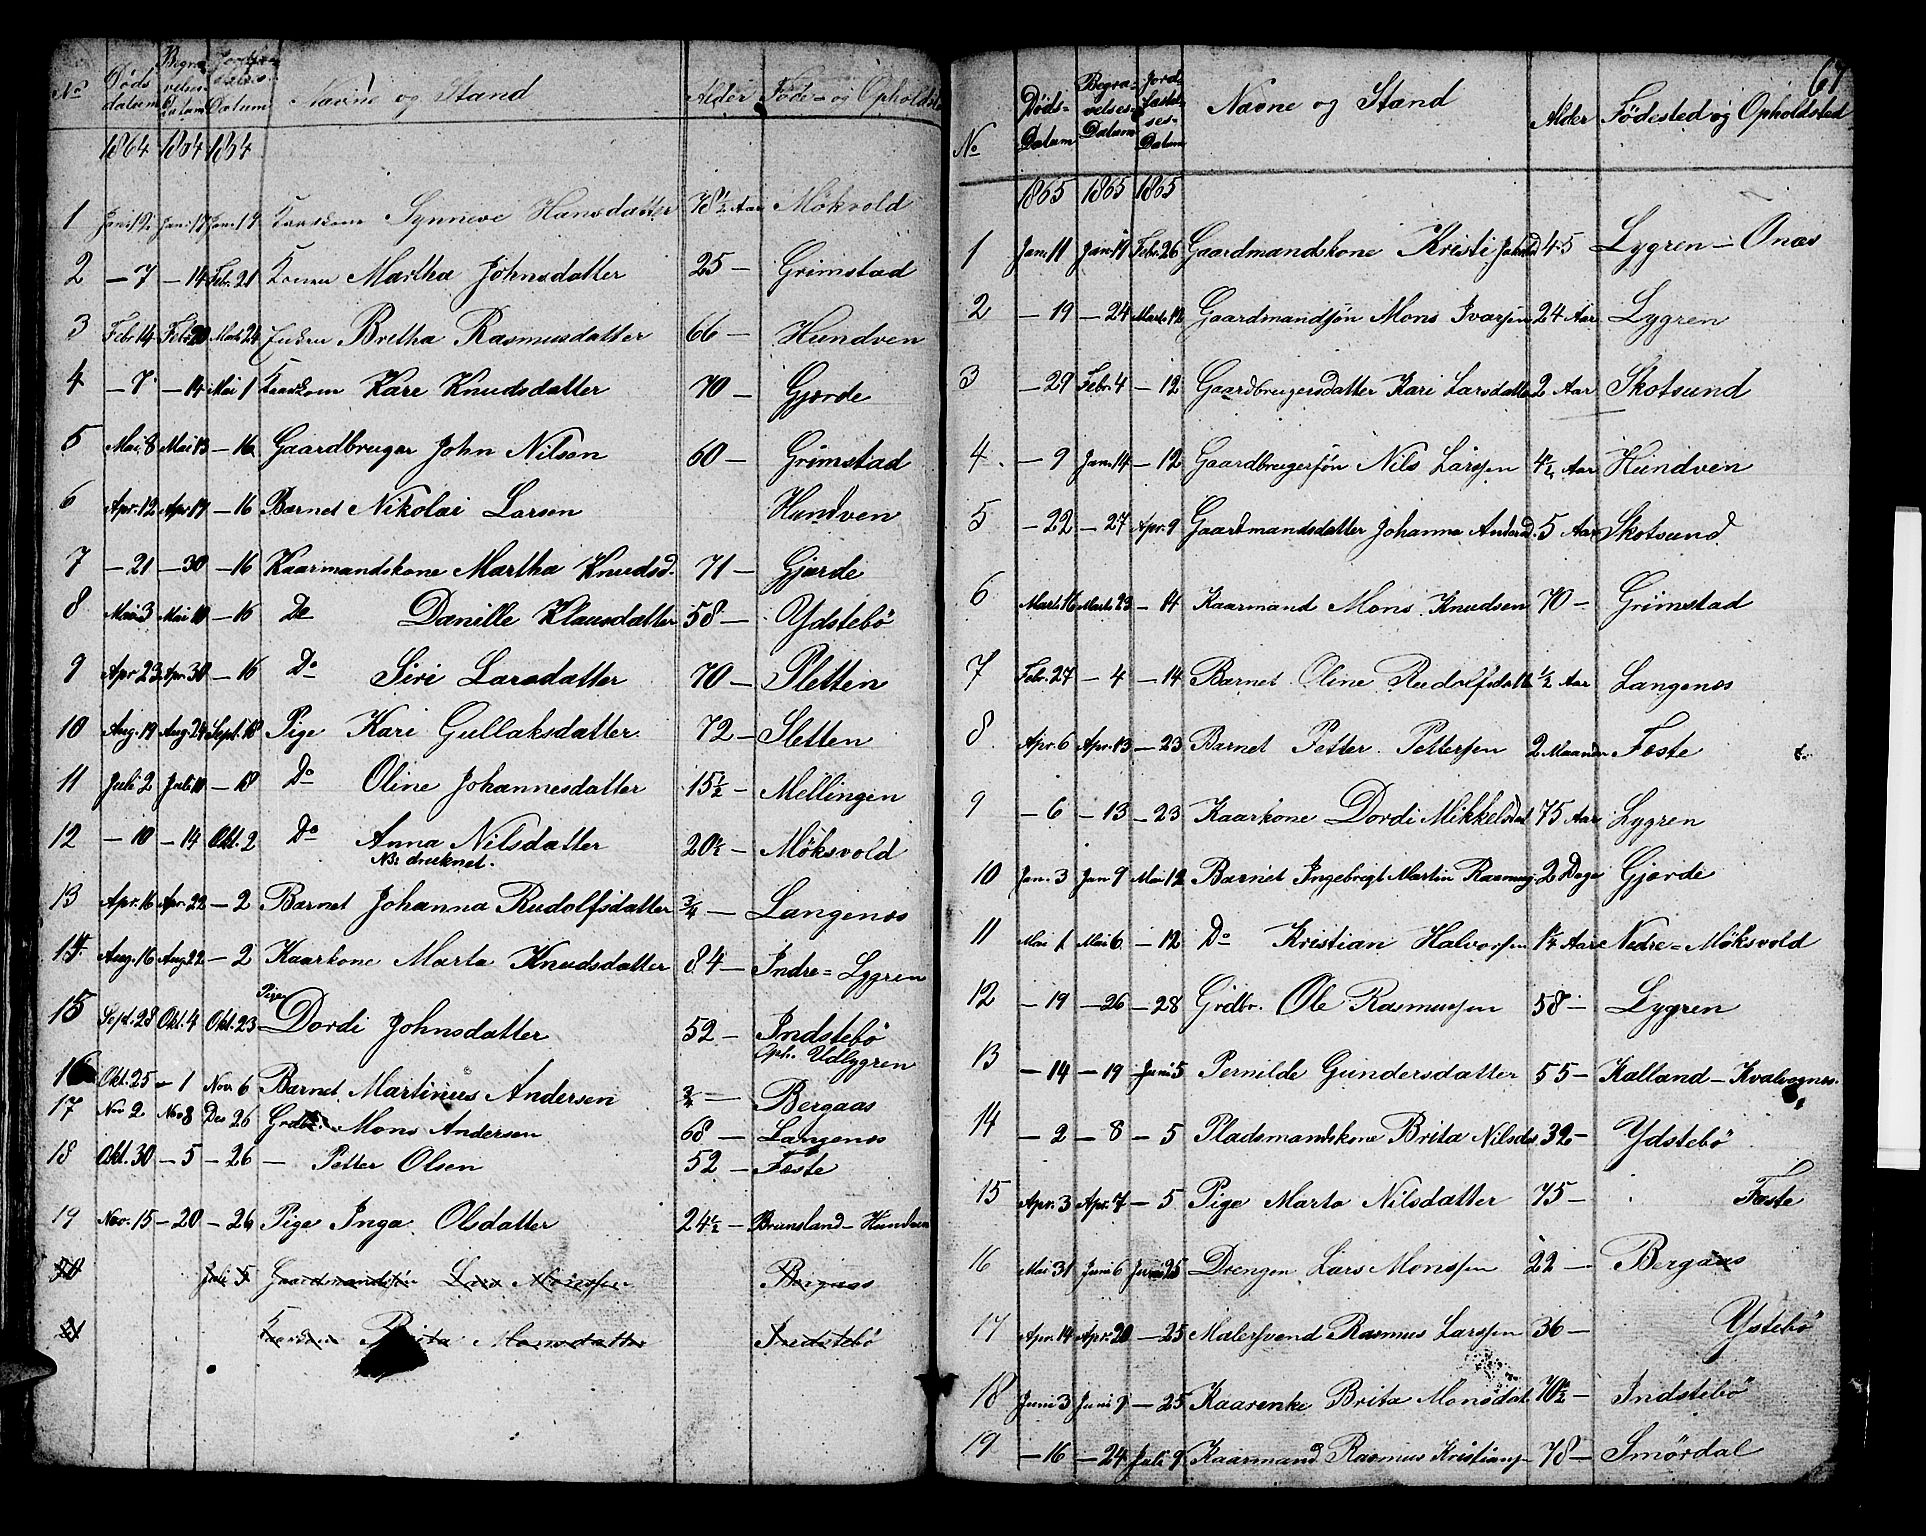 No Døds datum Begravelses Datum Jordfæstelses Datum Navne og Stand Alder Føde- og Opholdsted
1864 1864 1864
1 Jan 12 Jan 17 Jan 17 Kaarkone Synneve Hansdatter 78 1/2 Aar Mökvold
2 — 7 — 14 Febr. 21 Konen Martha Johnsdatter 25 — Grimstad
3 Febr 14 Febr 20 Marts 24 Enken Bretha Rasmusdatter 66 — Hundven
4 — 7 — 14 Mai 1 Kaarkonen Kare Knudsdatter 70 — Gjerde
5 Mai 8 Mai 13 — 16 Gaardbruger John Nilsen 60 — Grimstad
6 Apr. 12 Apr 17 — 16 Barnet Nikolai Larsen Hundven
7 — 21 — 30 — 16 Kaarmandskone Martha Knudsd. 71 — Gjerde
8 Mai 3 Mai 10 — 16 Do Danille Klausdatter 58 — Ydstebö
9 Apr 23 Apr. 30 — 16 Do Siri Larsdatter 70 — Sletten
10 Aug. 19 Aug. 24 Sept. 18 Pige Kari Gullaksdatter 72 — Sletten
11 Juli 2 Juli 10 — 18 Do Oline Johannesdatter 15 1/2 — Mellingen
12 — 10 — 14 Okt. 2 Do Anna Nilsdatter 20 1/2 — Möksvold
NB: druknet.
13 Apr. 16 Apr. 22 — 2 Barnet Johanna Rudolfsdatter 3/4 — Langenæs
14 Aug. 16 Aug 22 — 2 Kaarkone Marta Knudsdatter 84 — Indre= Lygren
15 Sept. 28 Okt. 4 Okt. 23 Pigen Dordi Johnsdatter 52 — Indstebö
Oph. Udlygren
16 Okt. 25 — 1 Nov. 6 Barnet Martinius Andersen — Bergaas
17 Nov 2 Nov 8 Des 26 Grdbr. Mons Andersen 68 — Langenæs
18 Okt. 30 — 5 — 26 — Petter Olsen 52 — Feste
19 Nov. 15 — 20 — 26 Pige Inga Olsdatter 24 1/2 — Brunsland — Hundven
20 Juli 5 Gaardmandssøn Lars Monssen Bergaas
21 Brita Monsdatter Indstebö
67
No Døds-Datum Begravelses-Datum Jordfæstelses-Datum Navne og Stand Alder Födested og Opholdsted
1865 1865 1865
1 Jan. 11 Jan. 17 Febr. 26 Gaardmandskone Kristi 45 Lygren — Onæs
2 — 19 — 24 Marts 12 Gaardmandsøn Mons Ivarsen 24 Aar Lygren
3 — 29 Febr. 4 — 12 Gaardbrugersdatter Kari Larsdatter 2 Aar Skotsund
4 — 9 Jan. 14 — 12 Gaardbrugersøn Nils Larssen 4 1/2 Aar Hundven
5 — 22 — 27 Apr. 9 Gaardmandsdatter Johanna Andersd. 5 Aar Skotsund
6 Marts 16 Marts 23 — 14 Kaarmand Mons Knudsen 70 — Grimstad
7 Febr. 27 — 4 — 14 Barnet Oline Rudolfsdatt. 1/2 Aar Langenæs
8 Apr. 6 Apr. 13 — 23 Barnet Petter Pettersen 2 Maaneder Feste
9 — 6 — 13 — 23 Kaarkone Dordi Mikkelsdat 75 Aar Lygren
10 Jan. 3 Jan 9 Mai 12 Barnet Ingebrigt Martin Rasmus. 2 Dage Gjerde
11 Mai 1 Mai 6 — 12 Do Kristian Halvorsen 1 1/4 Aar Nedre= Möksvold
12 — 19 — 26 — 28 Grdbr. Ole Rasmussen 58 — Lygren
13 — 14 — 19 Juni 5 Pernilde Gundersdatter 55 — Kalland — Kvalvognes.
14 — 2 — 8 — 5 Pladsmandskone Brita Nilsdr 32 — Ydstebö
15 Apr. 3 Apr. 7 — 5 Pige Marta Nilsdatter 75 — Feste
16 Mai 31 Juni 6 Juni 25 Drengen Lars Monssen 22 — Bergaas
17 Apr. 14 Apr. 20 — 25 Malersvend Rasmus Larssen 36 — Ystebö
18 Juni 3 Juni 9 — 25 Kaarenke Brita Monsdat. 70 1/2 — Indstebö
19 — 16 — 24 Juli 9 Kaarmand Rasmus Kristians. 78 — Smördal